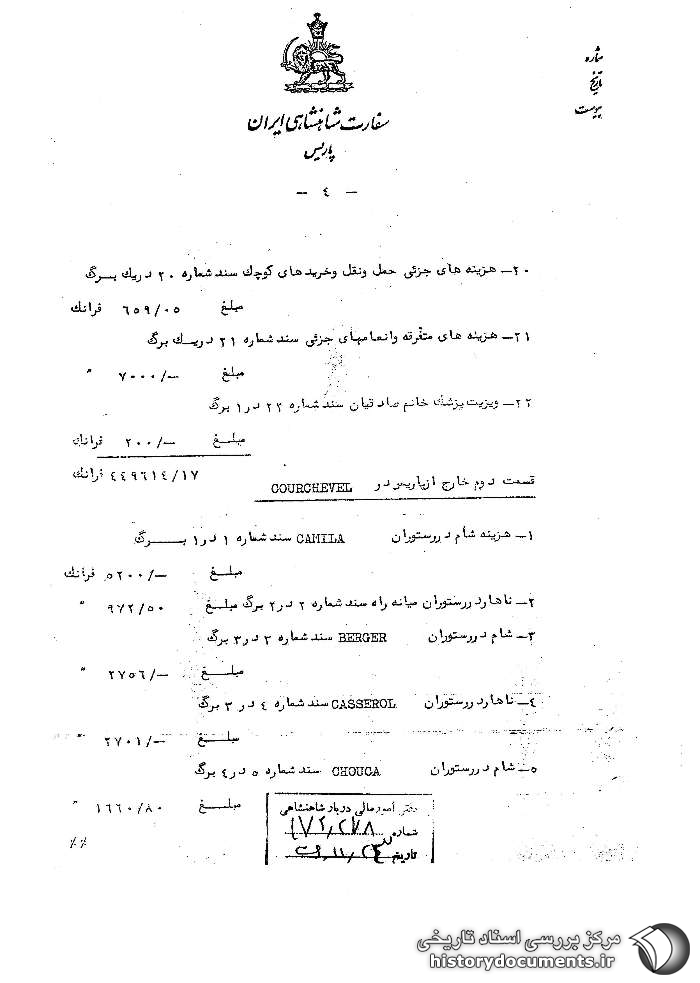 شماره
تاریخ
پیوست
سفارت شاهنشاهی ایران
پاریس
- ٤ -
٢٠- هزینه های جزئی حمل ونقل وخریدهای کوچك سند شماره ٢٠ دریك برگ
مبلغ ٦٥٩/٠٥ فرانك
٢١- هزینه های متفرقه وانعامهای جزئی سند شماره ٢١ دریك برگ
مبلغ ٧٠٠٠/- "
٢٢- ویزیت پزشك خانم صادقیان سند شماره ٢٢ در١ برگ
مبلغ ٢٠٠/- فرانك
٤٤٩٦١٤/١٧ فرانك
قسمت دوم خارج ازپاریس در COURCHEVEL
١- هزینه شام دررستوران CAMILA سند شماره ١ در١ برگ
مبلغ ٥٢٠٠/- فرانك
٢- ناهاردررستوران میانه راه سند شماره ٢ در٢ برگ مبلغ ٩٧٢/٥٠ "
٣- شام دررستوران BERGER سند شماره ٣ در٣ برگ
مبلغ ٢٧٥٦/- "
٤- ناهاردررستوران CASSEROL سند شماره ٤ در ٣ برگ
مبلغ ٢٧٠١/- "
٥- شام دررستوران CHOUCA سند شماره ٥ در٤ برگ
مبلغ ١٦٦٠/٨٠ "
دفتر امور مالی دربار شاهنشاهی
شماره
تاریخ
٪٪
مرکز بررسی اسناد تاریخی
historydocuments.ir